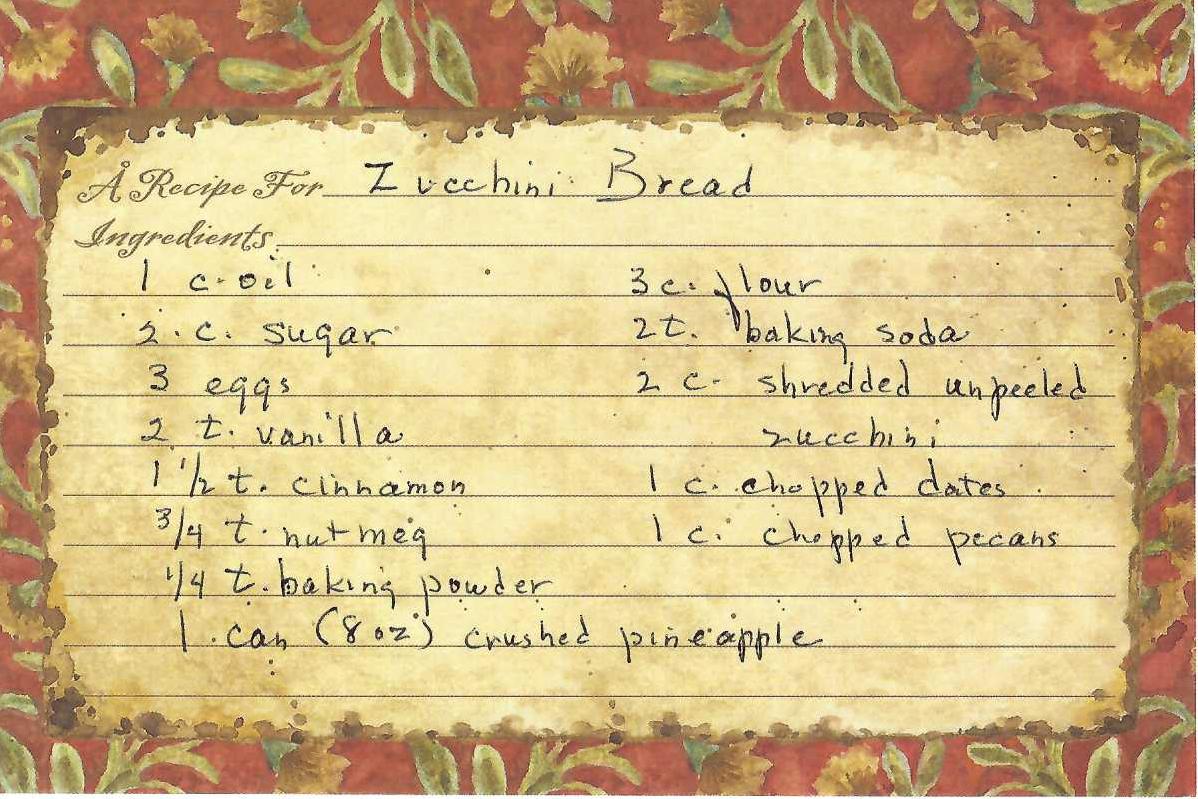 A Recipe For Zucchini Bread
Ingredients
1 c. oil
2 c. sugar
3 eggs
2 t. vanilla
1 1/2 t. cinnamon
3/4 t. nutmeg
1/4 t. baking powder
1 can (8 oz) crushed pineapple
3 c. flour
2 t. baking soda
2 c. shredded unpeeled
zucchini
1 c. chopped dates
1 c. chopped pecans